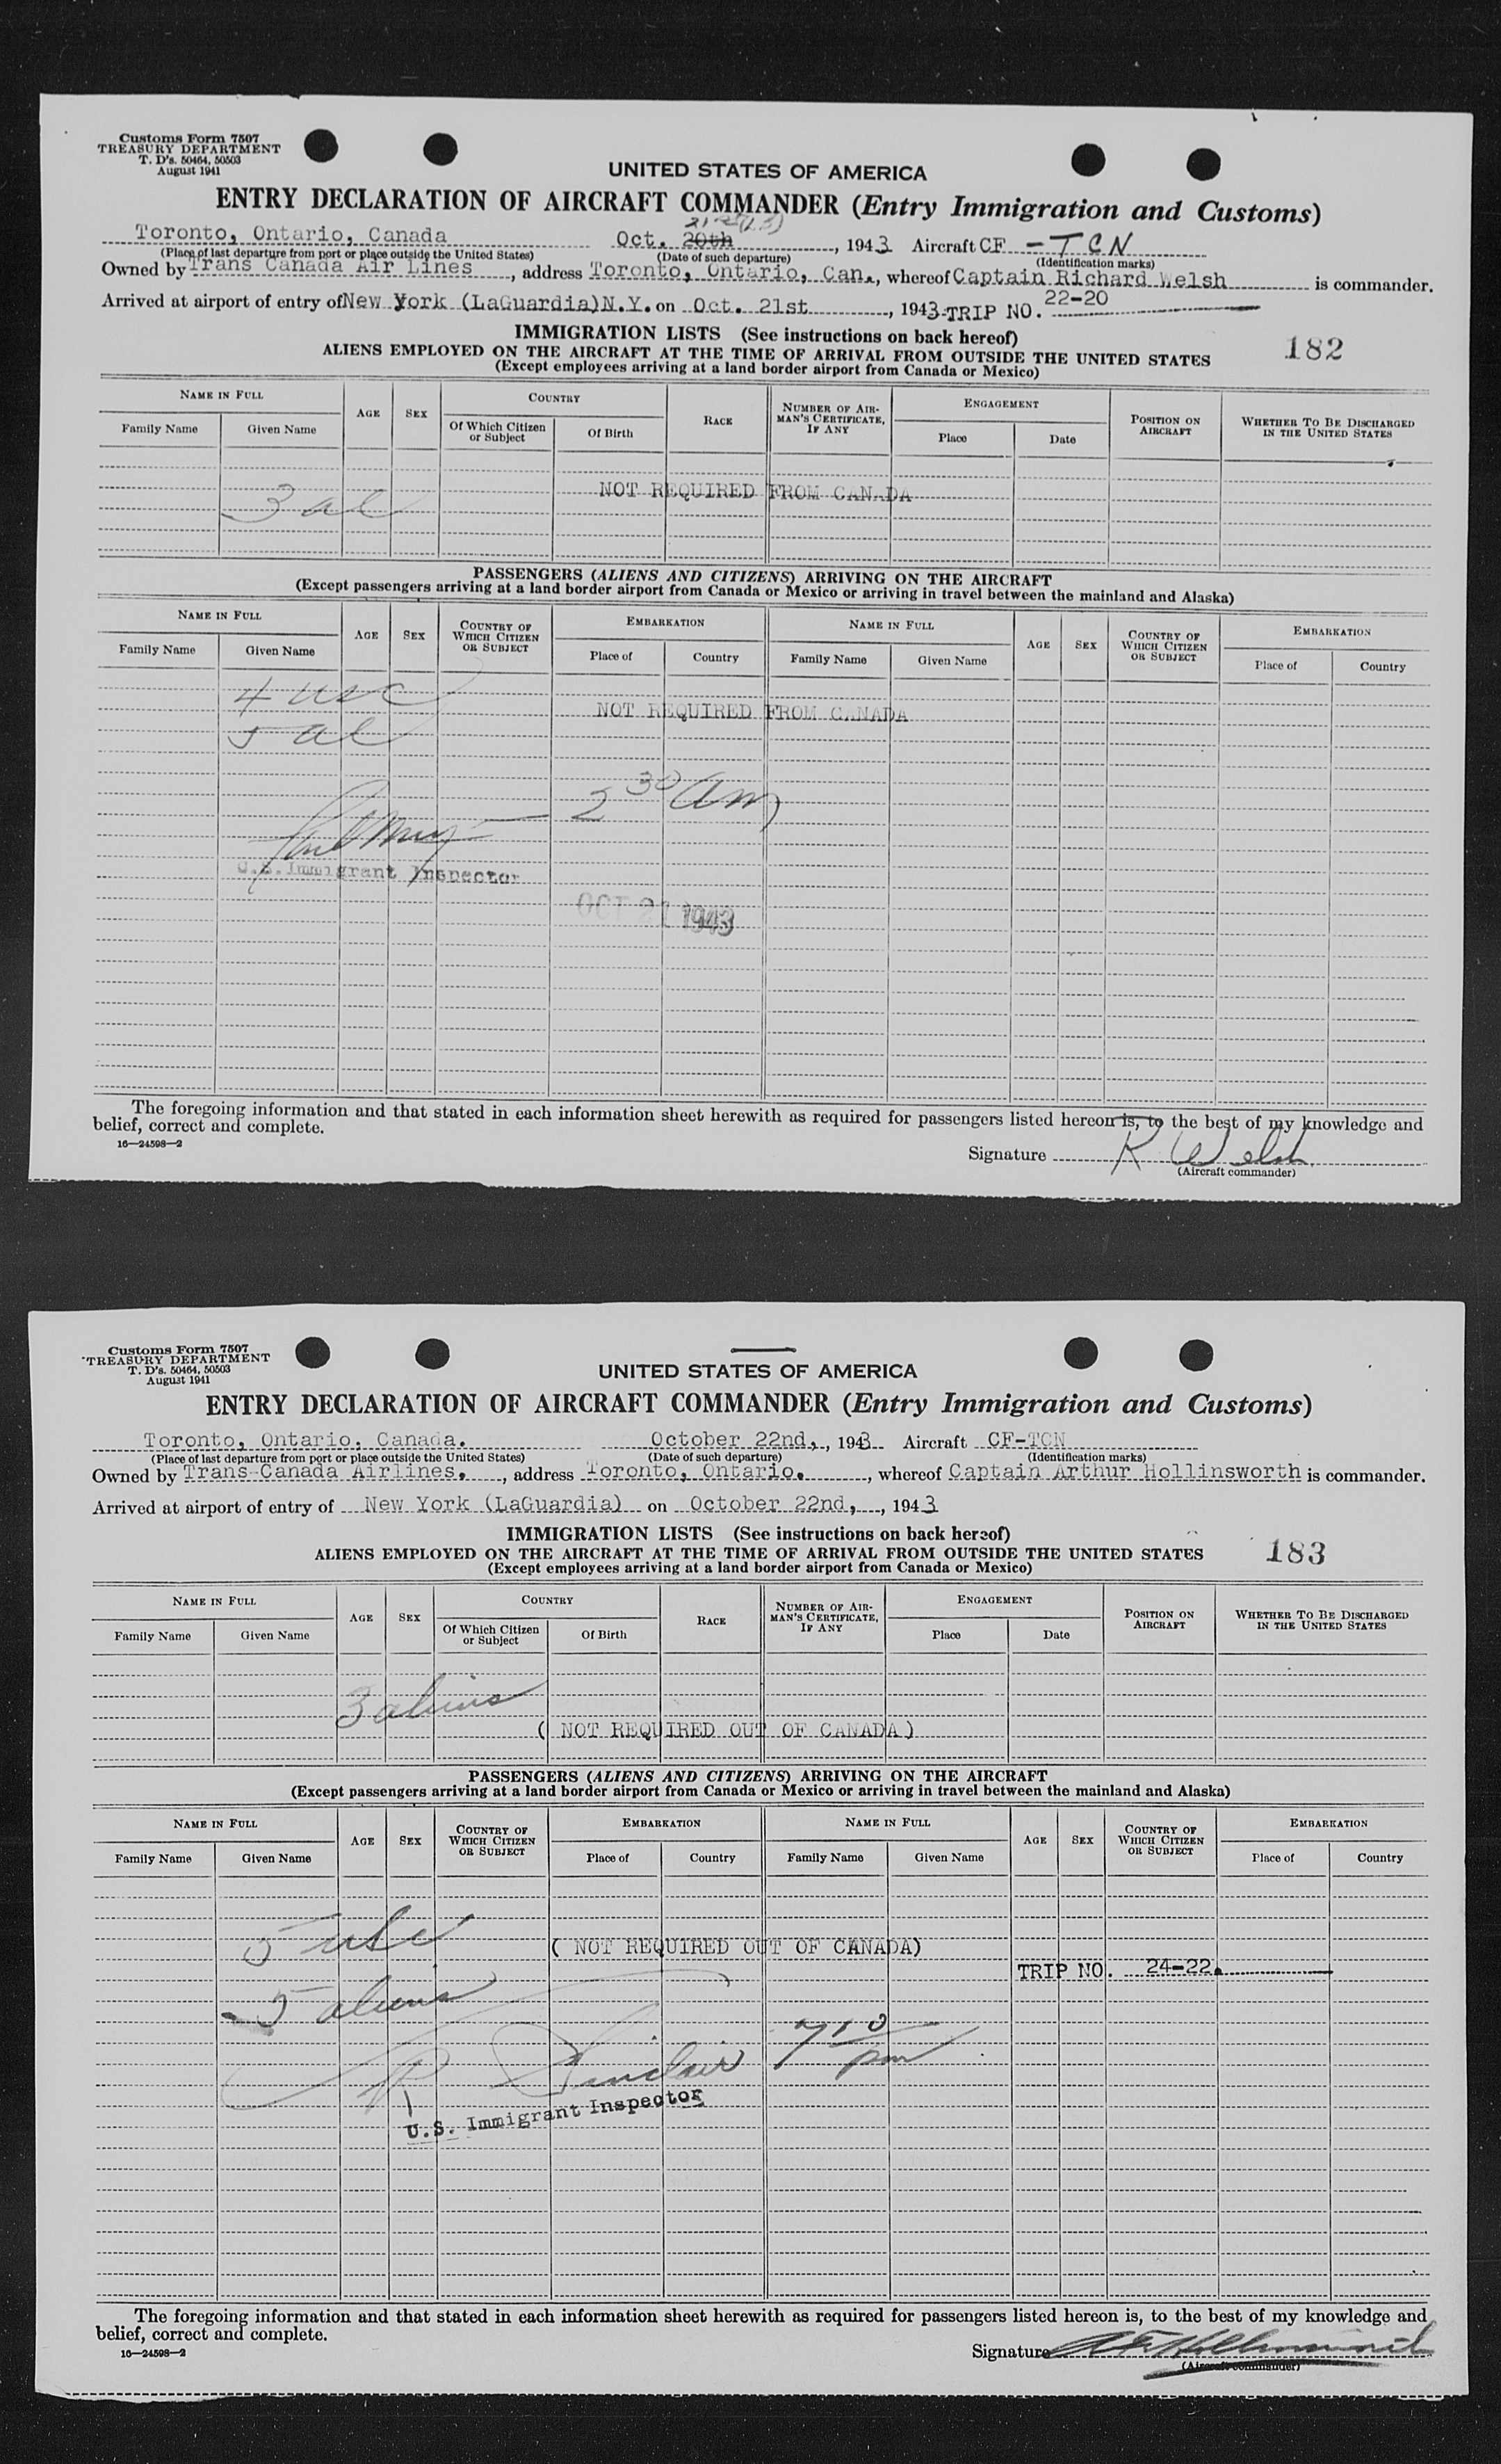 Customs Form 7507
TREASURY DEPARTMENT
T. D's. 50464, 50503
August 1941
UNITED STATES OF AMERICA
ENTRY DECLARATION OF AIRCRAFT COMMANDER (Entry Immigration and Customs)
Toronto, Ontario, Canada Oct. 20th, 1943 Aircraft CF-TCN
(Place of last departure from port or place outside the United States) (Date of such departure) (Identification marks)
Owned by Trans Canada Air Lines, address Toronto, Ontario, Can., whereof Captain Richard Welsh is commander.
Arrived at airport of entry of New York (LaGuardia) N.Y. on Oct. 21st, 1943 TRIP NO. 22-20
IMMIGRATION LISTS (See instructions on back hereof)
182
ALIENS EMPLOYED ON THE AIRCRAFT AT THE TIME OF ARRIVAL FROM OUTSIDE THE UNITED STATES
(Except employees arriving at a land border airport from Canada or Mexico)
NAME IN FULL AGE SEX COUNTRY RACE NUMBER OF AIRMAN'S CERTIFICATE, IF ANY ENGAGEMENT POSITION ON AIRCRAFT WHETHER TO BE DISCHARGED IN THE UNITED STATES
Family Name Given Name Of Which Citizen or Subject Of Birth Place Date
NOT REQUIRED FROM CANADA
3 al
PASSENGERS (ALIENS AND CITIZENS) ARRIVING ON THE AIRCRAFT
(Except passengers arriving at a land border airport from Canada or Mexico or arriving in travel between the mainland and Alaska)
NAME IN FULL AGE SEX COUNTRY OF WHICH CITIZEN OR SUBJECT EMBARKATION NAME IN FULL AGE SEX COUNTRY OF WHICH CITIZEN OR SUBJECT EMBARKATION
Family Name Given Name Place of Country Family Name Given Name Place of Country
4 usc
NOT REQUIRED FROM CANADA
5 al
2 30 am
U.S. Immigrant Inspector
OCT 21 1943
The foregoing information and that stated in each information sheet herewith as required for passengers listed hereon is, to the best of my knowledge and
belief, correct and complete.
16—24598—2
Signature R Welsh
(Aircraft commander)
Customs Form 7507
TREASURY DEPARTMENT
T. D's. 50464, 50503
August 1941
UNITED STATES OF AMERICA
ENTRY DECLARATION OF AIRCRAFT COMMANDER (Entry Immigration and Customs)
Toronto, Ontario, Canada. October 22nd, 1943 Aircraft CF-TCN
(Place of last departure from port or place outside the United States) (Date of such departure) (Identification marks)
Owned by Trans-Canada Airlines., address Toronto, Ontario., whereof Captain Arthur Hollinsworth is commander.
Arrived at airport of entry of New York (LaGuardia) on October 22nd, 1943
IMMIGRATION LISTS (See instructions on back hereof)
183
ALIENS EMPLOYED ON THE AIRCRAFT AT THE TIME OF ARRIVAL FROM OUTSIDE THE UNITED STATES
(Except employees arriving at a land border airport from Canada or Mexico)
NAME IN FULL AGE SEX COUNTRY RACE NUMBER OF AIRMAN'S CERTIFICATE, IF ANY ENGAGEMENT POSITION ON AIRCRAFT WHETHER TO BE DISCHARGED IN THE UNITED STATES
Family Name Given Name Of Which Citizen or Subject Of Birth Place Date
3 aliens
( NOT REQUIRED OUT OF CANADA)
PASSENGERS (ALIENS AND CITIZENS) ARRIVING ON THE AIRCRAFT
(Except passengers arriving at a land border airport from Canada or Mexico or arriving in travel between the mainland and Alaska)
NAME IN FULL AGE SEX COUNTRY OF WHICH CITIZEN OR SUBJECT EMBARKATION NAME IN FULL AGE SEX COUNTRY OF WHICH CITIZEN OR SUBJECT EMBARKATION
Family Name Given Name Place of Country Family Name Given Name Place of Country
5 usc
( NOT REQUIRED OUT OF CANADA)
TRIP NO. 24-22.
5 aliens
Sinclair 7 10 pm
U.S. Immigrant Inspector
The foregoing information and that stated in each information sheet herewith as required for passengers listed hereon is, to the best of my knowledge and
belief, correct and complete.
16—24598—2
Signature
(Aircraft commander)